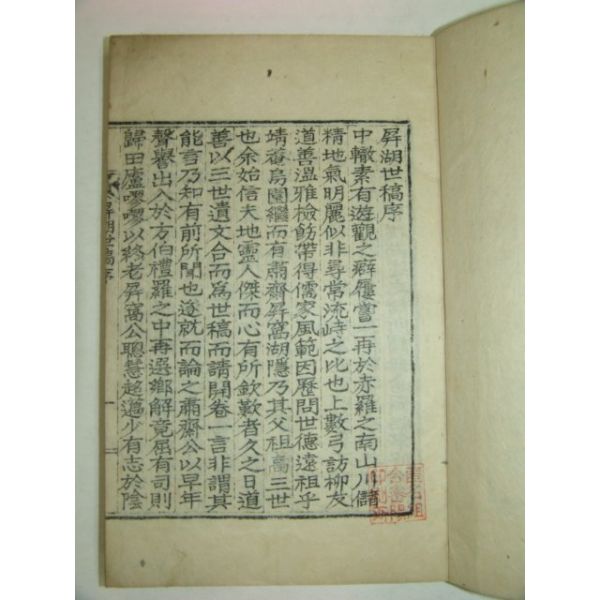 屛湖世稿序
中轍素有遊觀之癖屢嘗一再於赤羅之南山川儲
精地氣明麗似非尋常流峙之比也上數弓訪柳友
道善溫雅檢飭帶得儒家風範因歷問世德遠祖乎
靖菴烏圃繼而有肅齋屛窩湖隱乃其父祖高三世
也余始信夫地靈人傑而心有所欽歎者久之日道
善以三世遺文合而爲世稿而請開卷一言非謂其
能言乃知有前所聞也遂就而論之肅齋公以早年
聲譽出入於方伯禮羅之中再選鄕解竟屈有司則
歸田廬嘐嘐以終老屛窩公聰慧超邁少有志於陰
屛湖世稿序
一